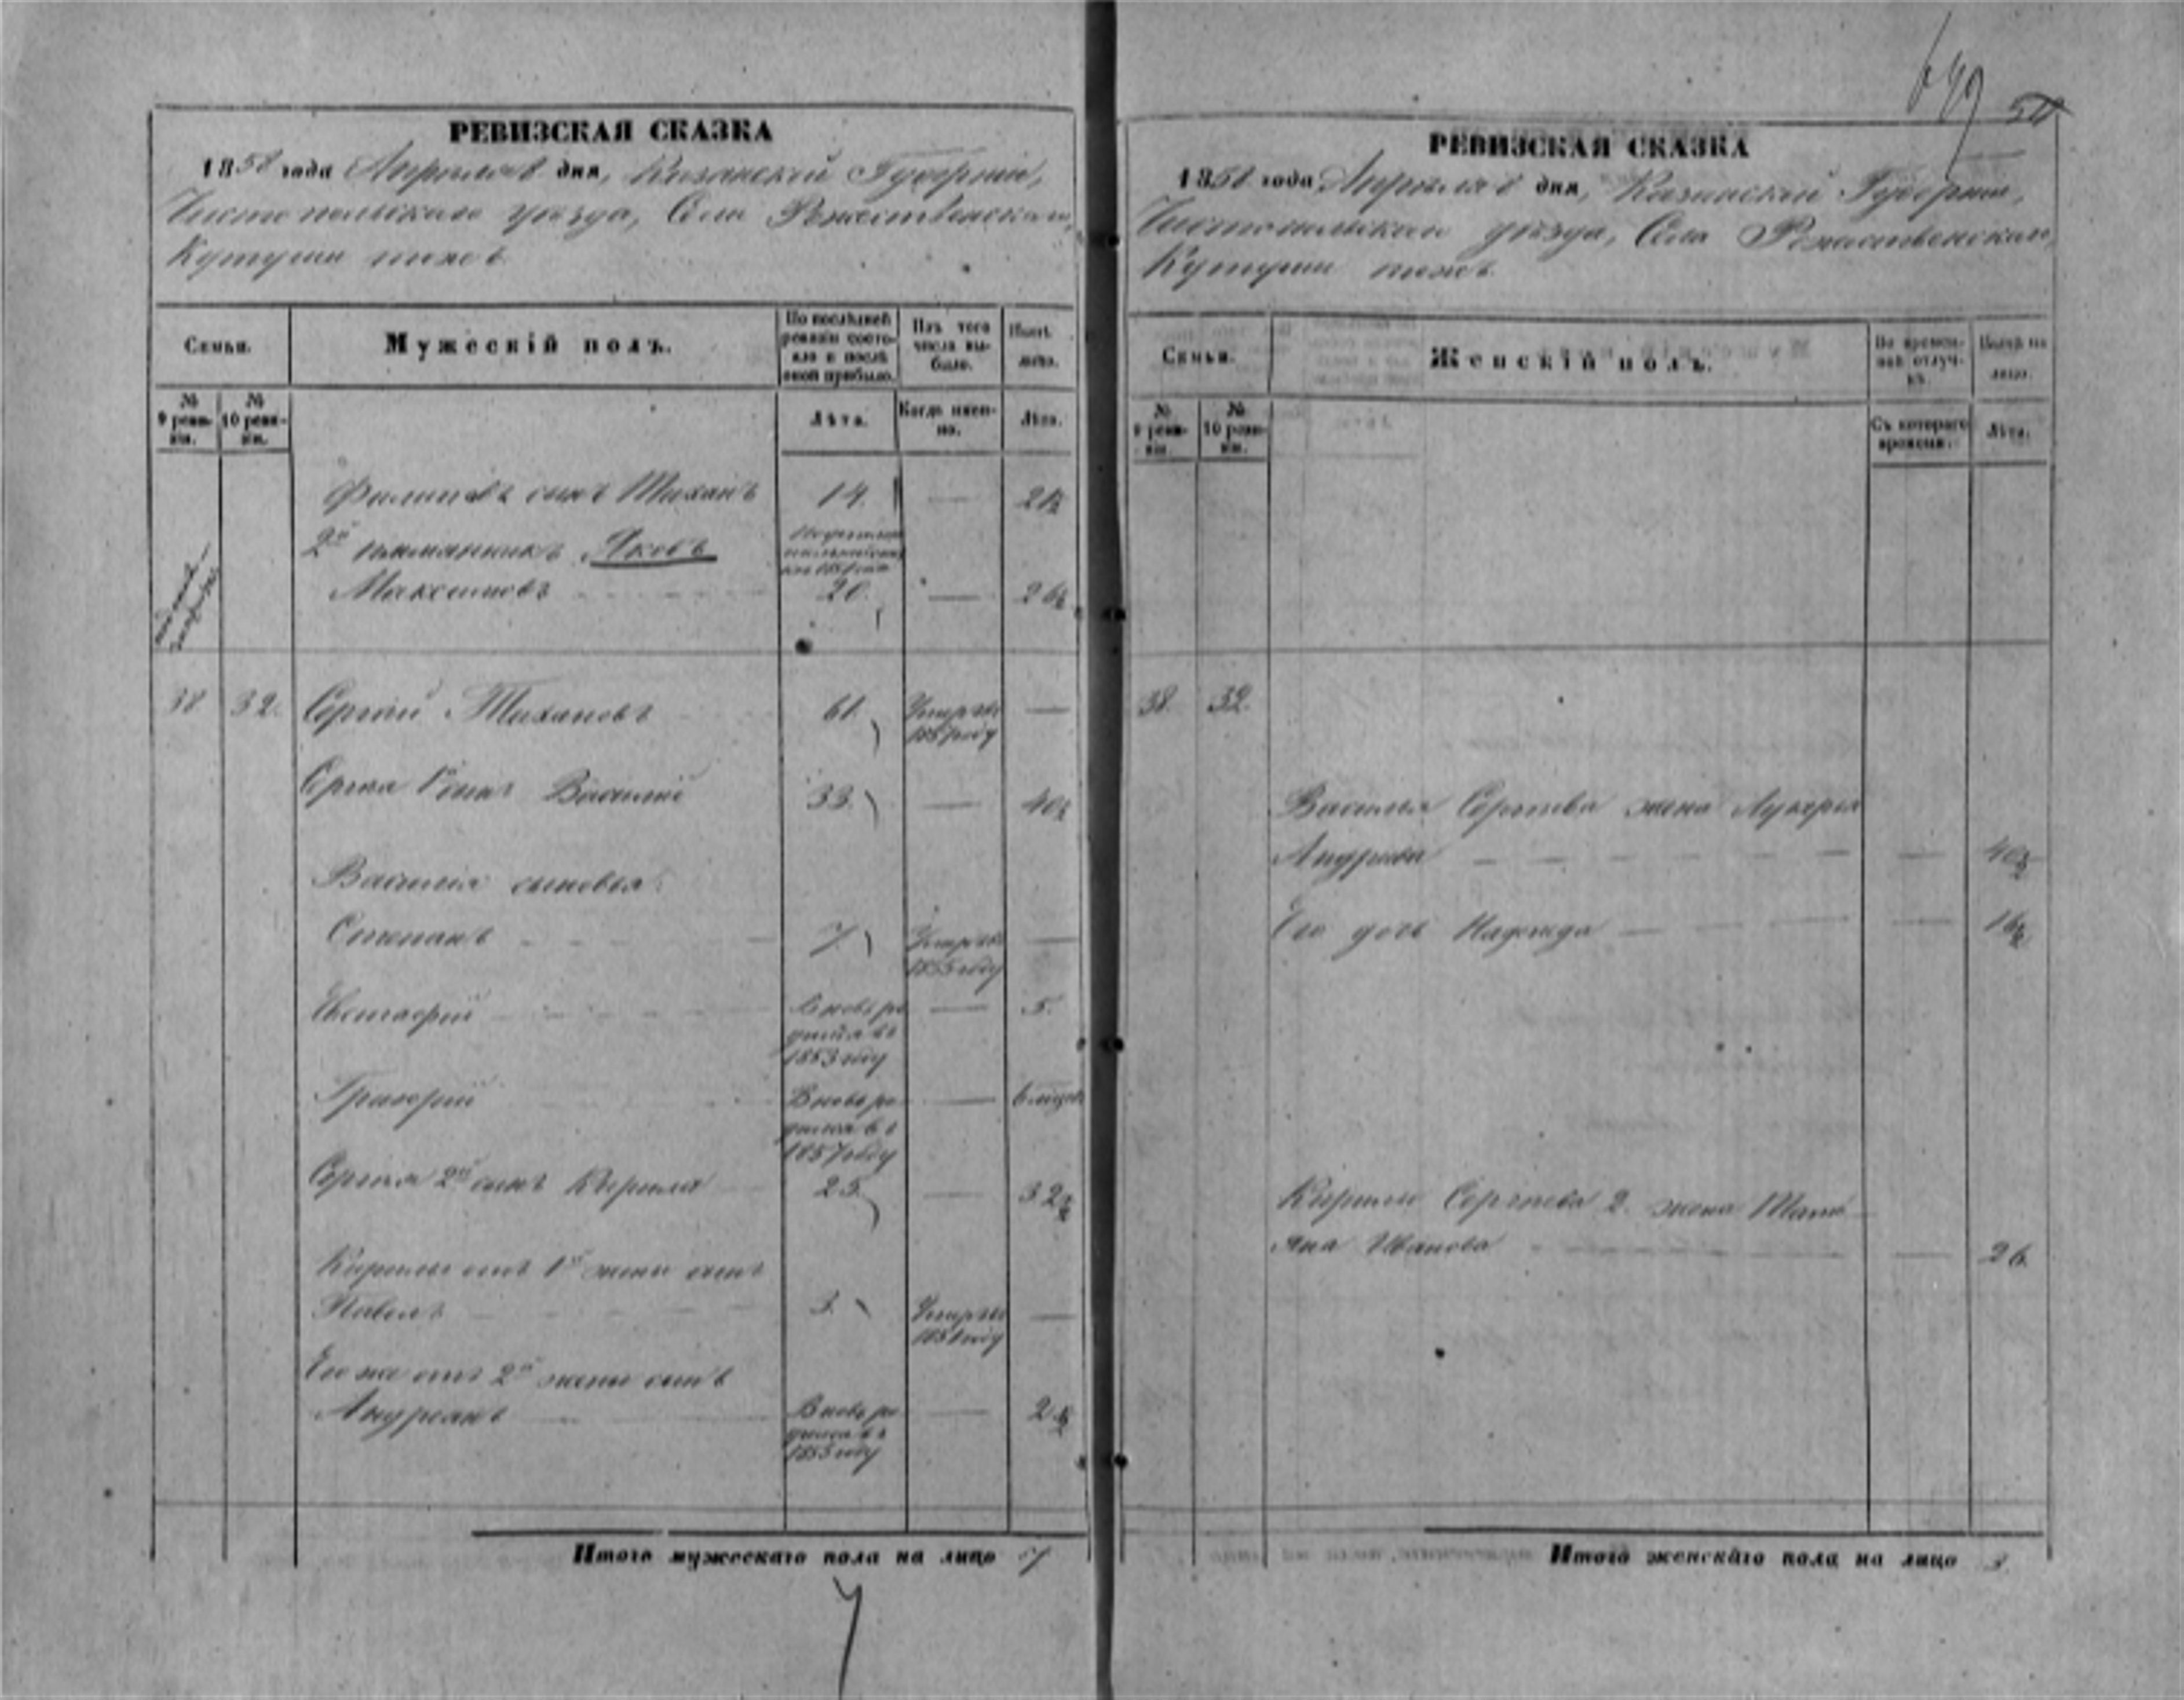 649 50
РЕВИЗСКАЯ СКАЗКА
1858 года Апреля 8 дня, Казанской Губернiи,
Чистопольскаго уѣзда, Села Рожественскаго,
Кутуши тожъ
Семьи.
Мужескiй полъ.
По послѣдней ревизiи состояло и послѣ оной прибыло.
Изъ того числа выбыло.
№ 9 ревизiи.
№ 10 ревизiи.
Лѣта.
Когда именно.
Лѣта.
Филиповъ сынъ Тиханъ 14. — 21½
2й племянникъ Яковъ
Максимовъ 20. — 26½
38 32. Сергѣй Тихановъ 61. Умеръ въ 1857 году —
Сергѣя 1 сынъ Василiй 33. — 40½
Василiя сыновья:
Степанъ 7. Умеръ въ 1855 году —
Евстафiй Вновь родился въ 1853 году — 5.
Григорiй Вновь родился въ 1857 году — 6 мѣсяц
Сергѣя 2й сынъ Кирила 25. — 32½
Кирилы отъ 1й жены сынъ
Павелъ 3. Умеръ въ 1851 году —
Его же отъ 2й жены сынъ
Андреанъ Вновь родился въ 1855 году — 2½
Итого мужескаго пола на лицо 7
7
РЕВИЗСКАЯ СКАЗКА
1858 года Апреля 8 дня, Казанской Губернiи,
Чистопольскаго уѣзда, Села Рожественскаго,
Кутуши тожъ.
Семьи.
Женскiй полъ.
Во временной отлучкѣ.
№ 9 ревизiи.
№ 10 ревизiи.
Съ котораго времени.
Лѣта.
38. 32.
Василья Сергѣева жена Лукерья
Андреева — 40½
Его дочь Надежда — 16½
Кирилы Сергѣева 2. жена Татьяна Иванова — 26.
Итого женскаго пола на лицо 3.